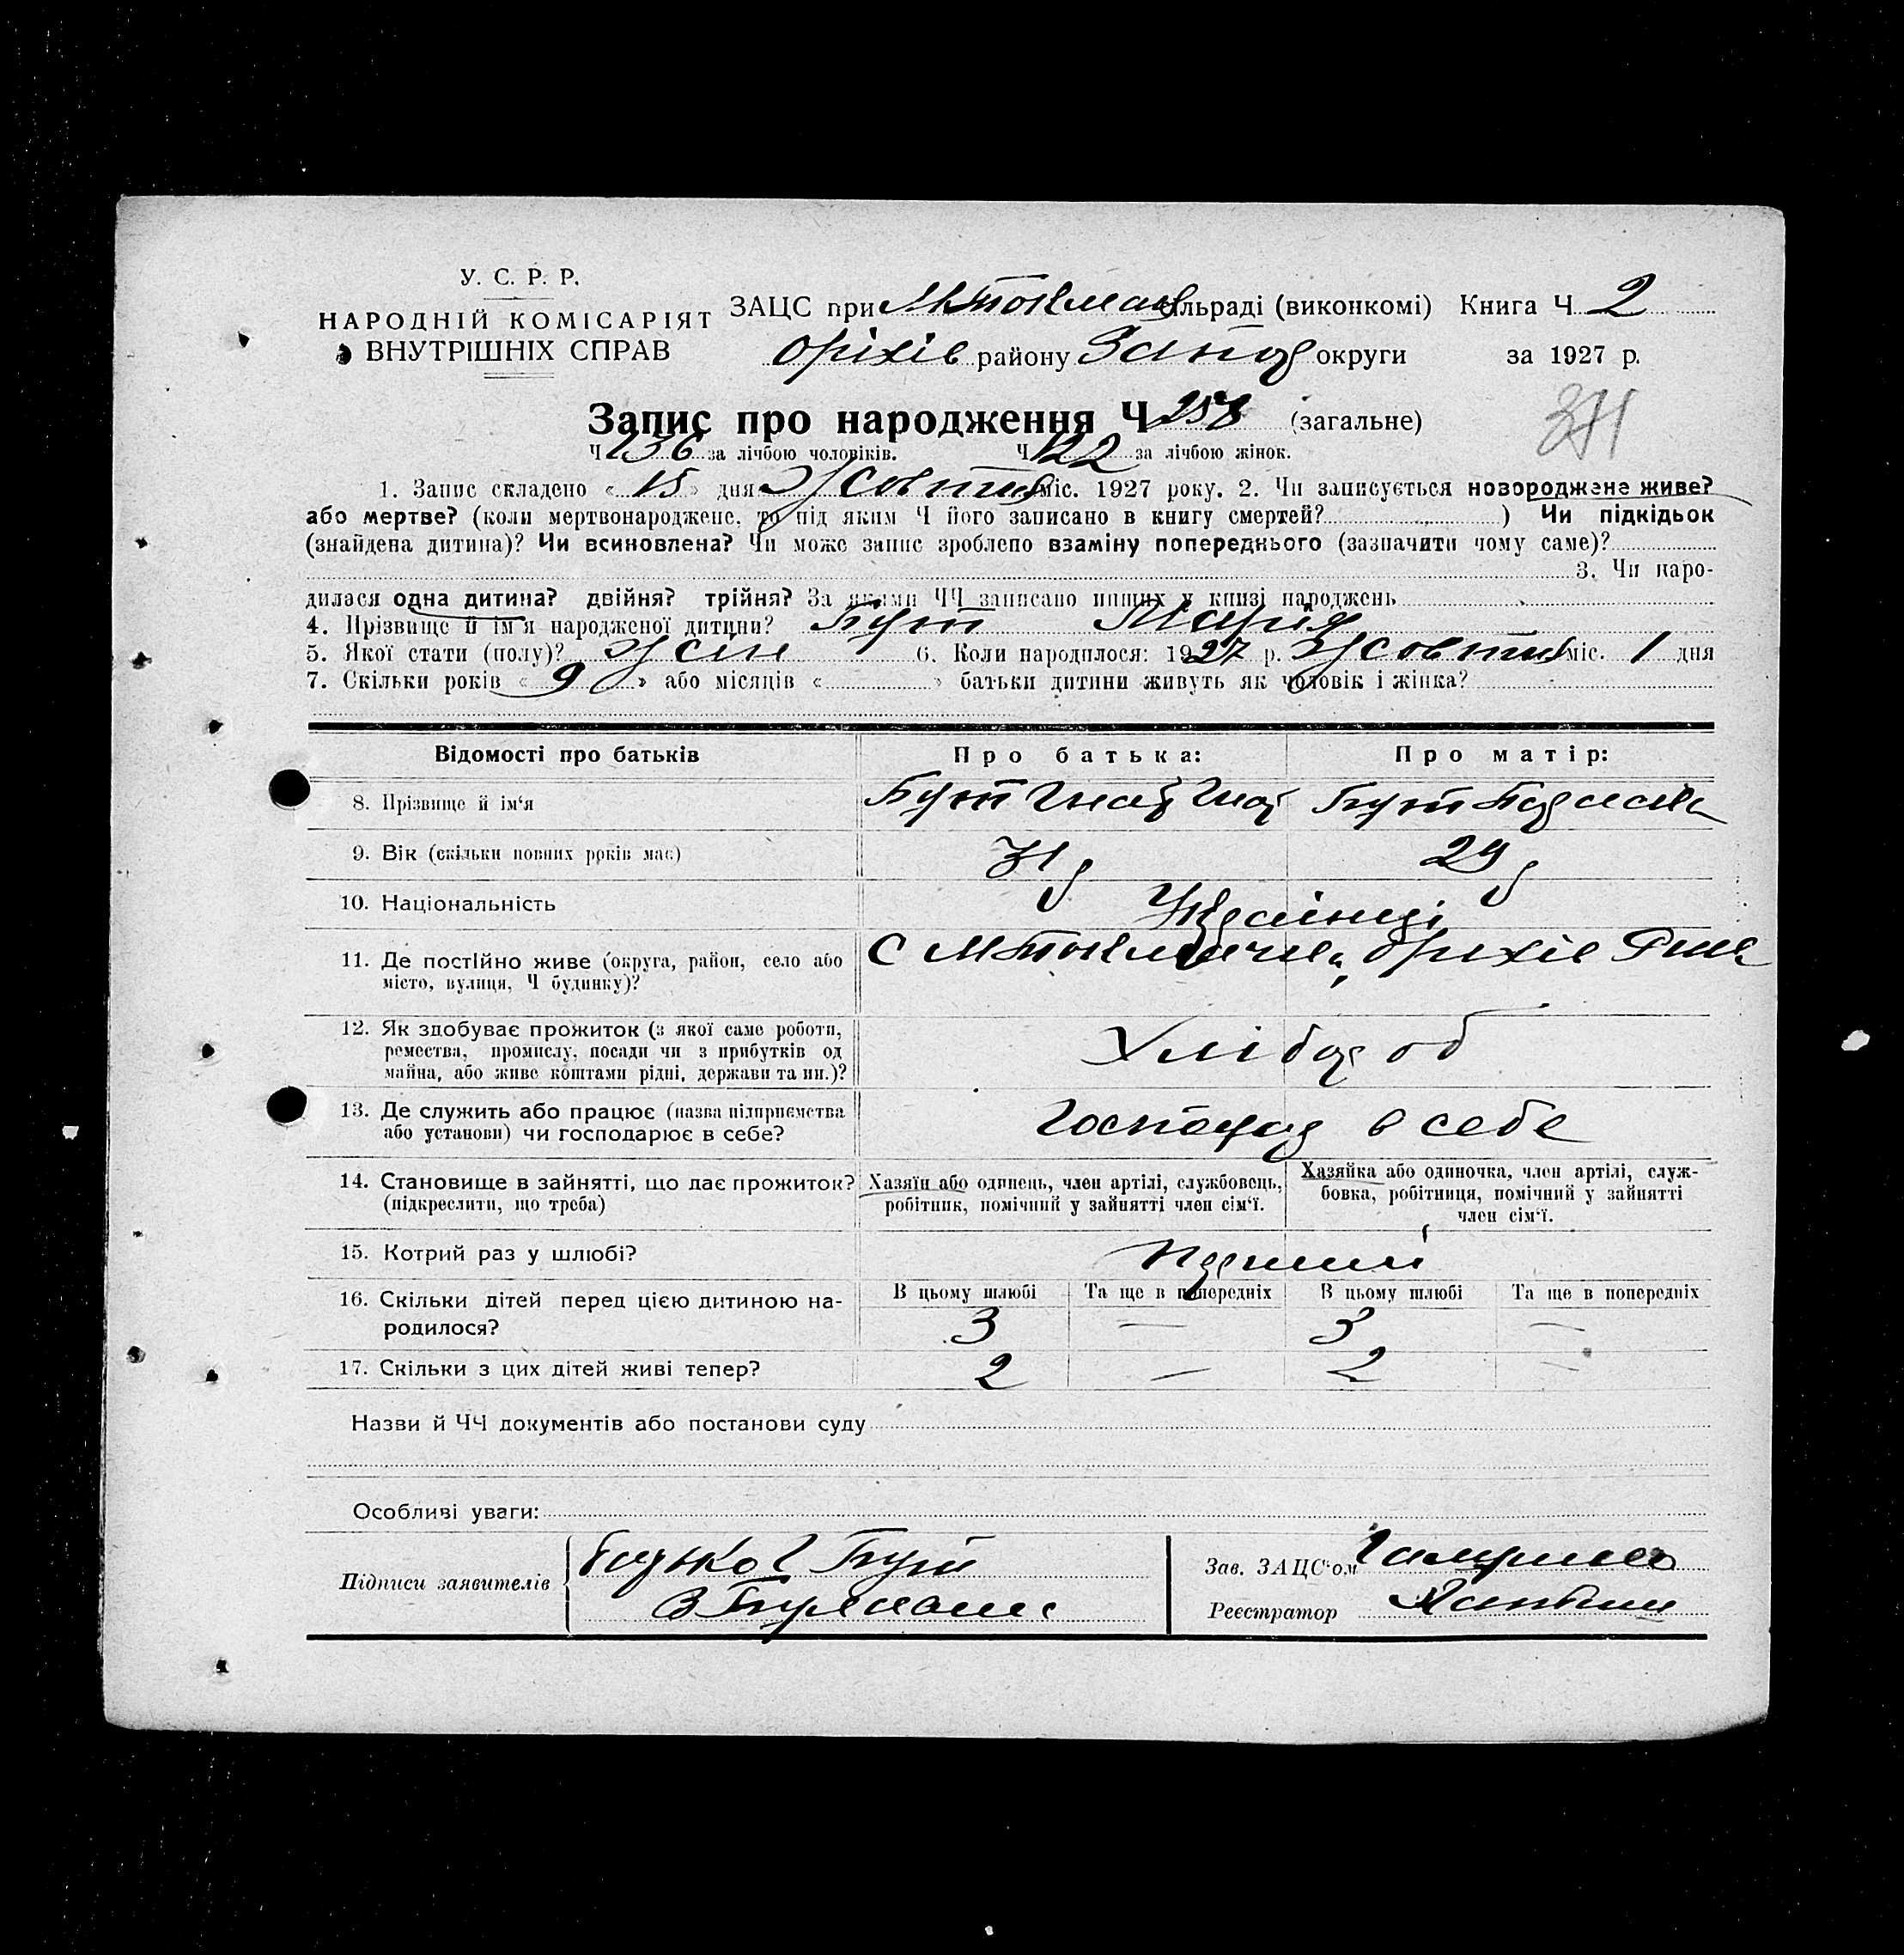 У. С. Р. Р.
НАРОДНІЙ КОМІСАРІЯТ
ВНУТРІШНІХ СПРАВ
ЗАЦС при М Токмац сільраді (виконкомі) Книга Ч 2
Оріхів району Запор округи за 1927 р.
Запис про народження Ч 258 (загальне)
Ч 136 за лічбою чоловіків. Ч 122 за лічбою жінок.
1. Запис складено « 15 » дня Жовтня міс. 1927 року. 2. Чи записується новороджене живе?
або мертве? (коли мертвонароджене, то під яким Ч його записано в книгу смертей? ) Чи підкідьок
(знайдена дитина)? Чи всиновлена? Чи може запис зроблено взаміну попереднього (зазначити чому саме)?
3. Чи наро-
дилася одна дитина? двійня? трійня? За якими ЧЧ записано инших у книзі народжень
4. Прізвище й ім'я народженої дитини? Бут Марія
5. Якої стати (полу)? Жін 6. Коли народилося: 1927 р. Жовтня міс. 1 дня
7. Скільки років « 9 » або місяців « » батьки дитини живуть як чоловік і жінка?
Відомості про батьків Про батька: Про матір:
8. Прізвище й ім'я Бут Гнат Гнат Бут
9. Вік (скільки повних років має) 31 р 29 р
10. Національність Українці
11. Де постійно живе (округа, район, село або
місто, вулиця, Ч будинку)?
С М Токмачка, Оріхів
12. Як здобуває прожиток (з якої саме роботи,
ремества, промислу, посади чи з прибутків од
майна, або живе коштами рідні, держави та ин.)?
Хлібороб
13. Де служить або працює (назва підприємства
або установи) чи господарює в себе?
Господар в себе
14. Становище в зайнятті, що дає прожиток?
(підкреслити, що треба)
Хазяїн або одинець, член артілі, службовець,
робітник, помічний у зайнятті член сім'ї.
Хазяйка або одиночка, член артілі, служ-
бовка, робітниця, помічний у зайнятті
член сім'ї.
15. Котрий раз у шлюбі? перший
16. Скільки дітей перед цією дитиною на-
родилося?
В цьому шлюбі Та ще в попередніх В цьому шлюбі Та ще в попередніх
3 — 3 —
17. Скільки з цих дітей живі тепер? 2 — 2 —
Назви й ЧЧ документів або постанови суду
Особливі уваги:
Підписи заявителів Батько Г Бут
Зав. ЗАЦС'ом
Реєстратор